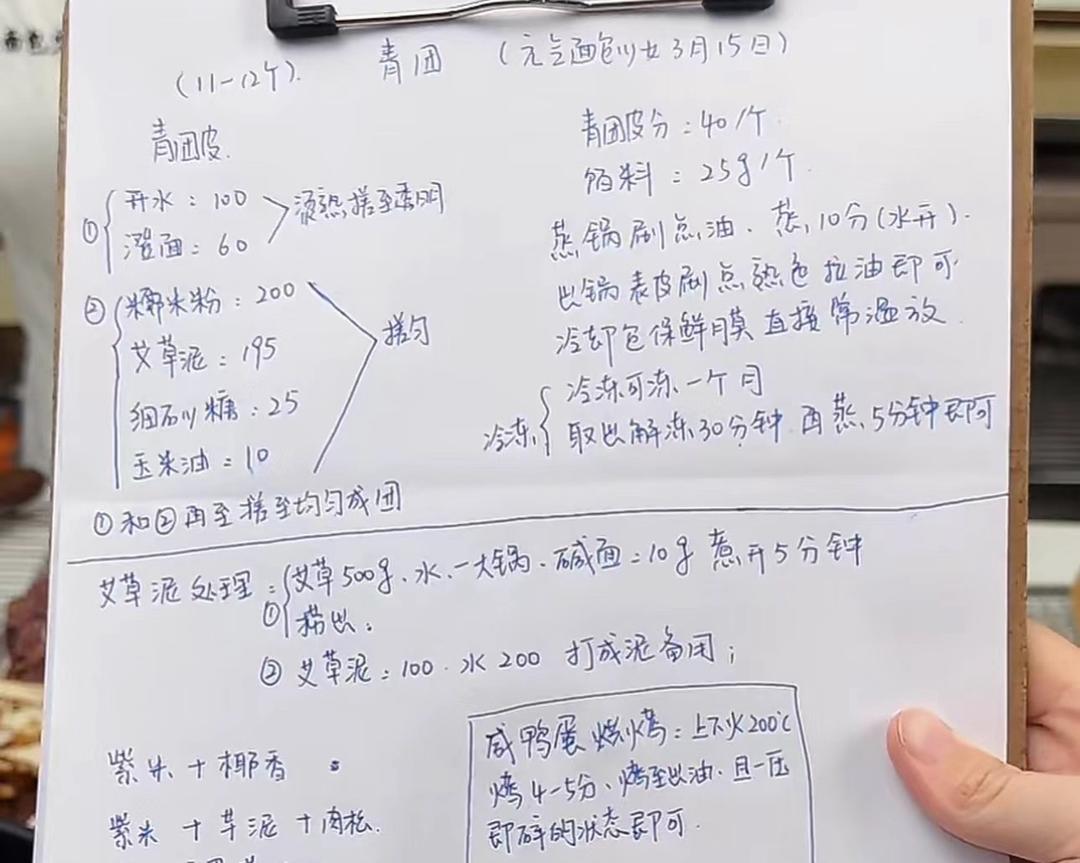 青团 (元气面包少女3月15日)
(11-12个).
青团皮.
① 开水:100
澄面:60
烫熟搓至透明
② 糯米粉:200
艾草泥:195
细砂糖:25
玉米油:10
搓匀
①和②再至搓至均匀成团
青团皮分:40/个.
馅料:25g/个.
蒸锅刷点油、蒸10分(水开).
出锅表皮刷点熟色拉油即可
冷却包保鲜膜直接常温放.
冷冻 冷冻可冻一个月
取出解冻30分钟再蒸5分钟即可
艾草泥处理:① 艾草500g、水一大锅、碱面:10g 煮开5分钟
捞出;
② 艾草泥:100、水200 打成泥备用;
紫米+椰香
紫米+芋泥+肉松.
咸鸭蛋烘烤:上下火200℃
烤4-5分、烤至出油、且一压
即碎的状态即可.